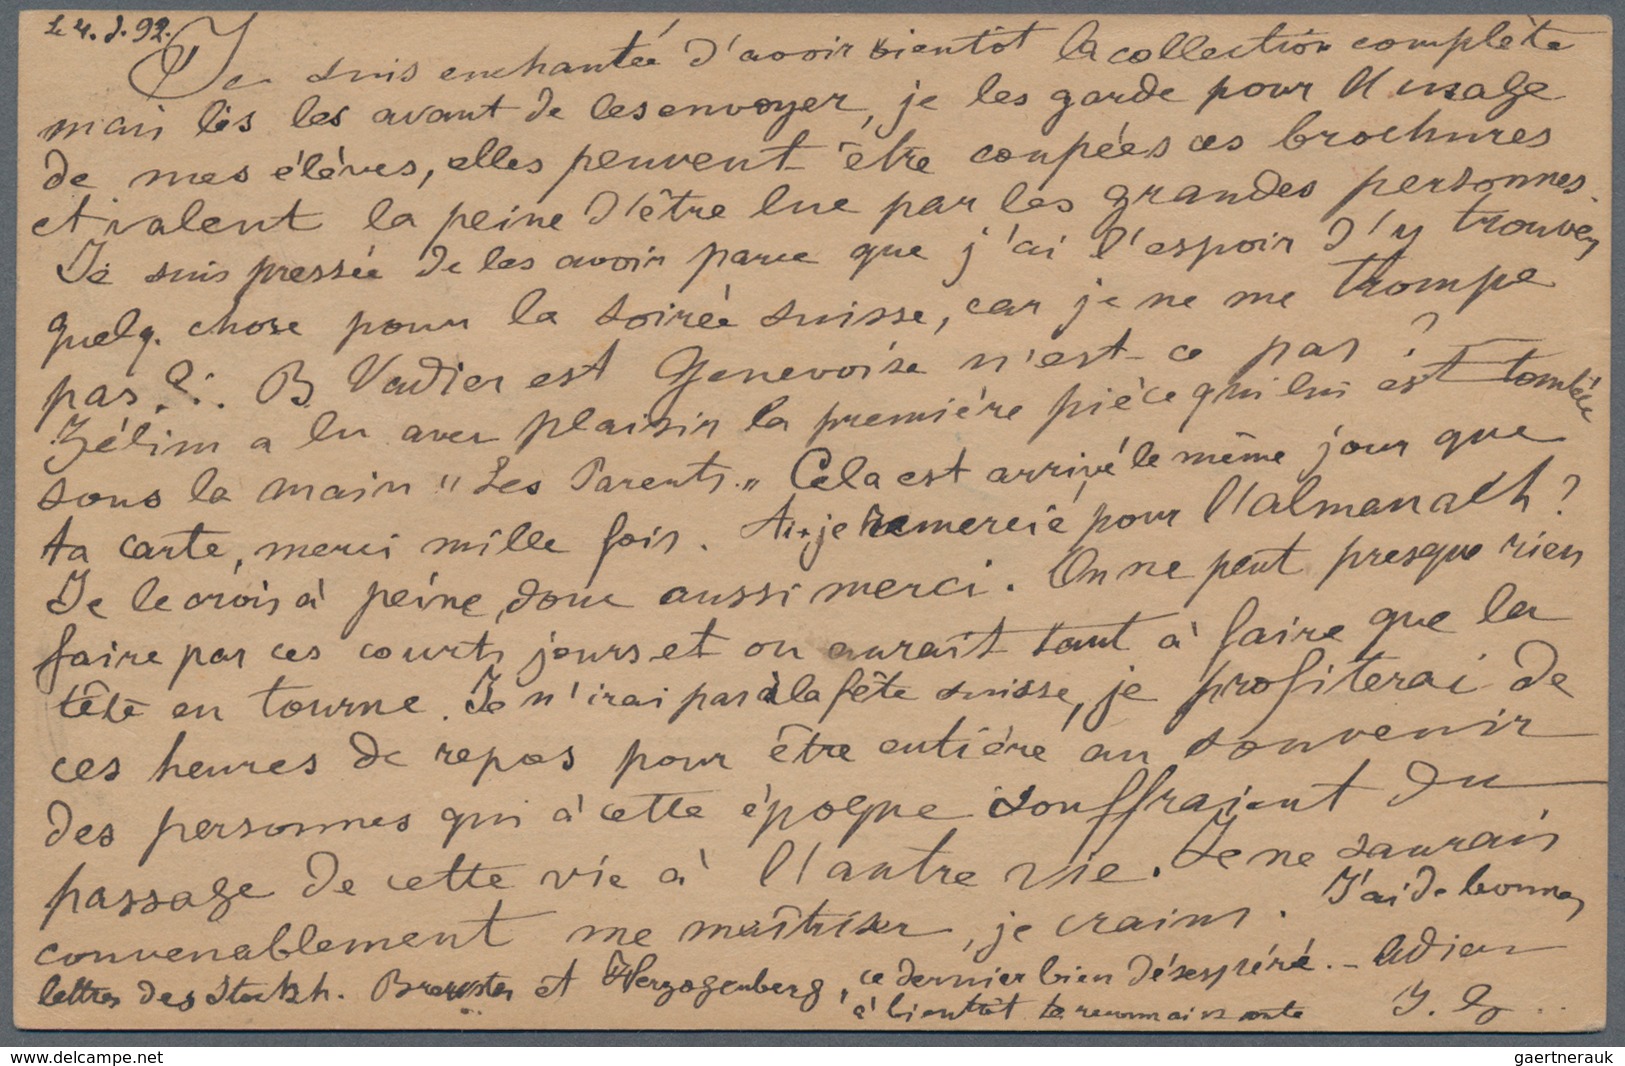 Le 4. J. 92.
Je suis enchantée d'avoir bientôt la collection complète
mais lis les avant de les envoyer, je les garde pour l'usage
de mes élèves, elles peuvent être coupées ces brochures
et valent la peine d'être lue par les grandes personnes.
Je suis pressée de les avoir parce que j'ai l'espoir d'y trouver
quelq. chose pour la soirée suisse, car je ne me trompe
pas ?. B Vadier est Genevoise n'est-ce pas ?
Zélim a lu avec plaisir la première pièce qui lui est tombée
sous la main "Les Parents". Cela est arrivé le même jour que
ta carte, merci mille fois. Ai-je remercié pour l'almanach ?
Je le crois à peine, donc aussi merci. On ne peut presque rien
faire par ces courts jours et on aurait tant à faire que la
tête en tourne. Je n'irai pas à la fête suisse, je profiterai de
ces heures de repos pour être entière au souvenir
des personnes qui à cette époque souffraient du
passage de cette vie à l'autre vie. Je ne saurais
convenablement me maîtriser, je crains. J'ai de bonnes
lettres des Stockh. Brewster et Herzogenberg, ce dernier bien désespéré. - Adieu
à bientôt ta reconnaissante
gaertnerauk - www.picme.com